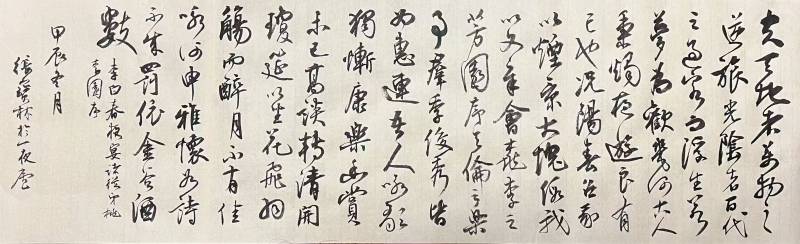 夫天地者萬物之
逆旅光陰者百代
之過客而浮生若
夢為歡幾何古人
秉燭夜遊良有
已也況陽春召我
以煙景大塊假我
以文章會桃李之
芳園序天倫之樂
事羣季俊秀皆
為惠連吾人詠歌
獨慚康樂幽賞
未已高談轉清開
瓊筵以坐花飛羽
觴而醉月不有佳
咏何申雅懷如詩
不成罰依金谷酒
數
李白春夜宴諸從弟桃
李園序
甲辰冬月
林於一夜廬